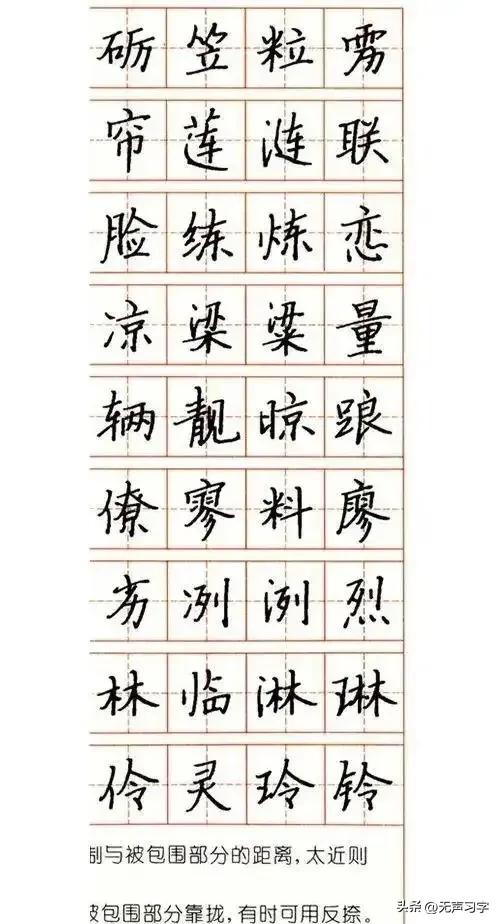 砺 笠 粒 雳
帘 莲 涟 联
脸 练 炼 恋
凉 梁 粱 量
辆 靓 晾 踉
僚 寥 料 廖
劣 冽 洌 烈
林 临 淋 琳
伶 灵 玲 铃
制与被包围部分的距离,太近则
被包围部分靠拢,有时可用反捺。
头条 @无声习字